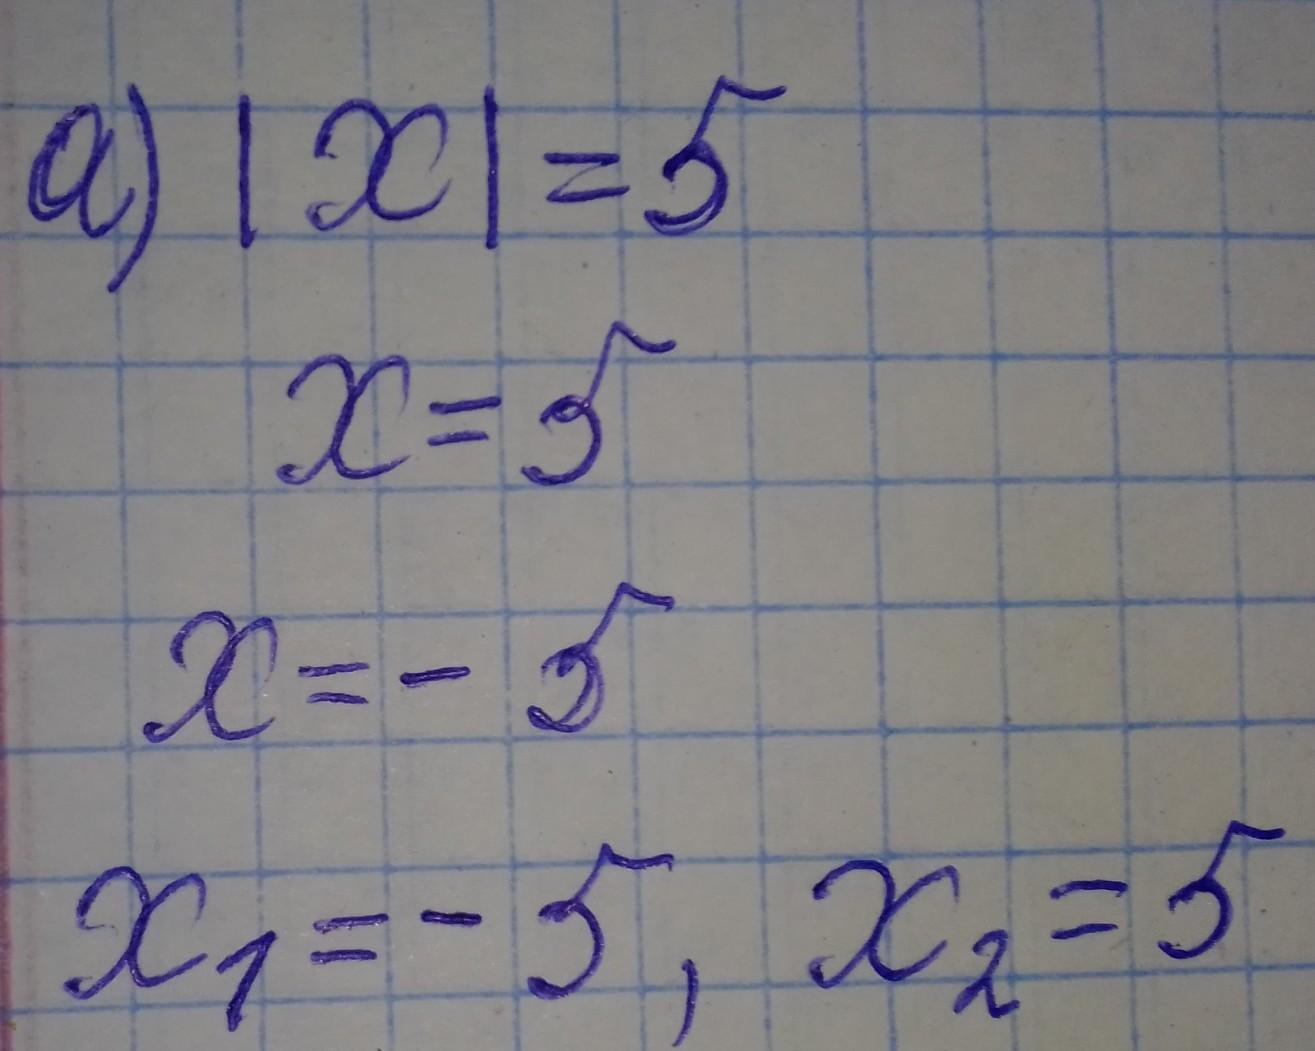 а) |x| = 5
x = 5
x = - 5
x₁ = - 5, x₂ = 5